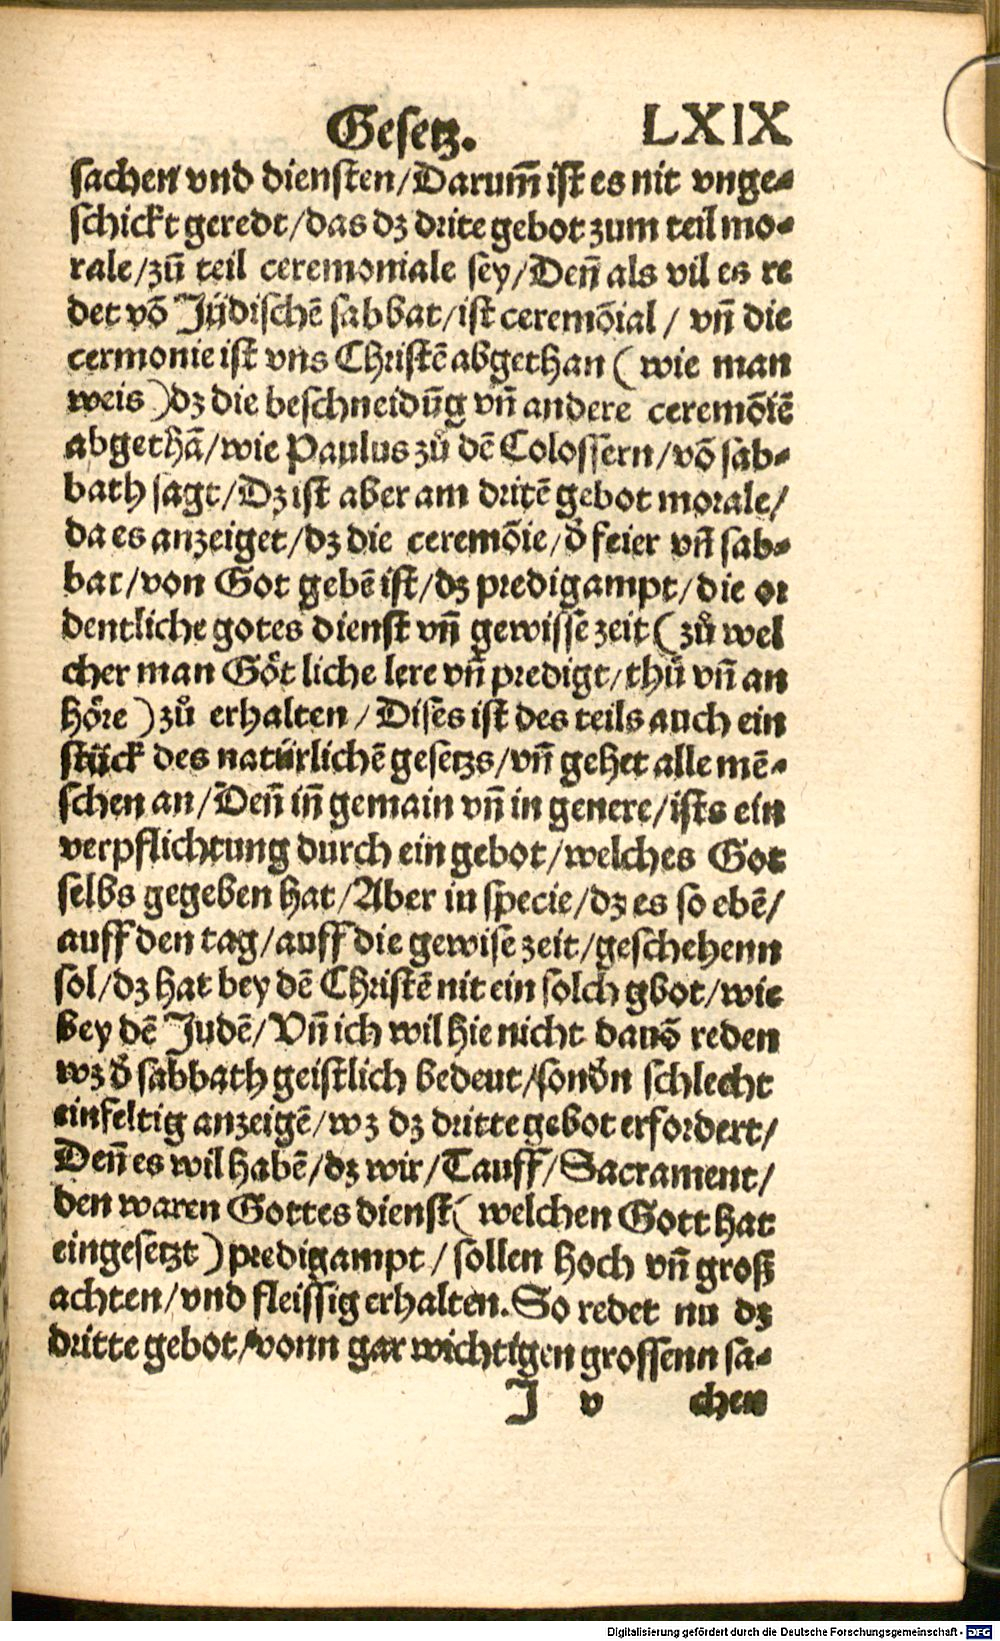 Gesetz. LXIX
sachen vnd diensten/Darum̃ ist es nit vnge-
schickt geredt/das dz drite gebot zum teil mo-
rale/zũ teil ceremoniale sey/Deñ als vil es re
det võ Jüdischẽ sabbat/ist ceremõial/ vñ die
cermonie ist vns Christẽ abgethan ( wie man
weis )dz die beschneidũg vñ andere ceremõiẽ
abgethã/wie Paulus zů dẽ Colossern/võ sab-
bath sagt/Dz ist aber am dritẽ gebot morale/
da es anzeiget/dz die ceremõie/d̕ feier vñ sab-
bat/von Got gebẽ ist/dz predigampt/die or
dentliche gotes dienst vñ gewissẽ zeit ( zů wel
cher man Goͤt liche lere vñ predigt/thuͤ vñ an
hoͤre ) zů erhalten / Dises ist des teils auch ein
stück des natürlichẽ gesetzs/vñ gehet alle mẽ-
schen an/Deñ iñ gemain vñ in genere/ists ein
verpflichtung durch ein gebot/welches Got
selbs gegeben hat/Aber in specie/dz es so ebẽ/
auff den tag/auff die gewise zeit/geschehenn
sol/dz hat bey dẽ Christẽ nit ein solch gbot/wie
bey dẽ Judẽ/Vñ ich wil hie nicht dauõ reden
wz d̕ sabbath geistlich bedeut/sond̕n schlecht
einfeltig anzeigẽ/wz dz dritte gebot erfordert/
Deñ es wil habẽ/dz wir/Tauff/Sacrament/
den waren Gottes dienst( welchen Gott hat
eingesetzt ) predigampt / sollen hoch vñ groß
achten/vnd fleissig erhalten. So redet nu dz
dritte gebot/vonn gar wichtigen grossenn sa-
J v chen
Digitalisierung gefördert durch die Deutsche Forschungsgemeinschaft - DFG